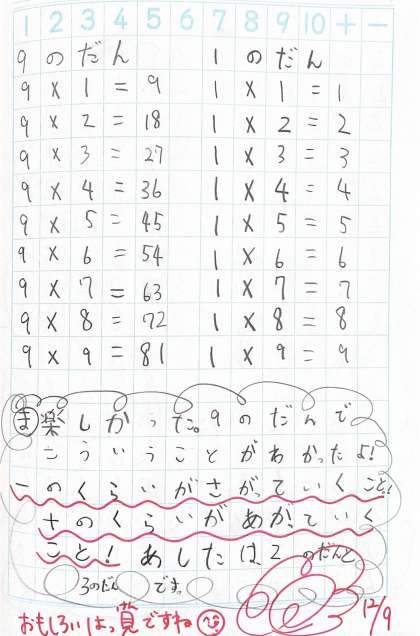 1 2 3 4 5 6 7 8 9 10 + −
9のだん 1のだん
9 × 1 = 9 1 × 1 = 1
9 × 2 = 18 1 × 2 = 2
9 × 3 = 27 1 × 3 = 3
9 × 4 = 36 1 × 4 = 4
9 × 5 = 45 1 × 5 = 5
9 × 6 = 54 1 × 6 = 6
9 × 7 = 63 1 × 7 = 7
9 × 8 = 72 1 × 8 = 8
9 × 9 = 81 1 × 9 = 9
ま 楽しかった。9のだんで
こういうことがわかったよ!
一のくらいがさがっていくこと。!
十のくらいがあがっていく
こと! あしたは、2のだんと
3のだんです。
12/9
おもしろいはっ覚ですね